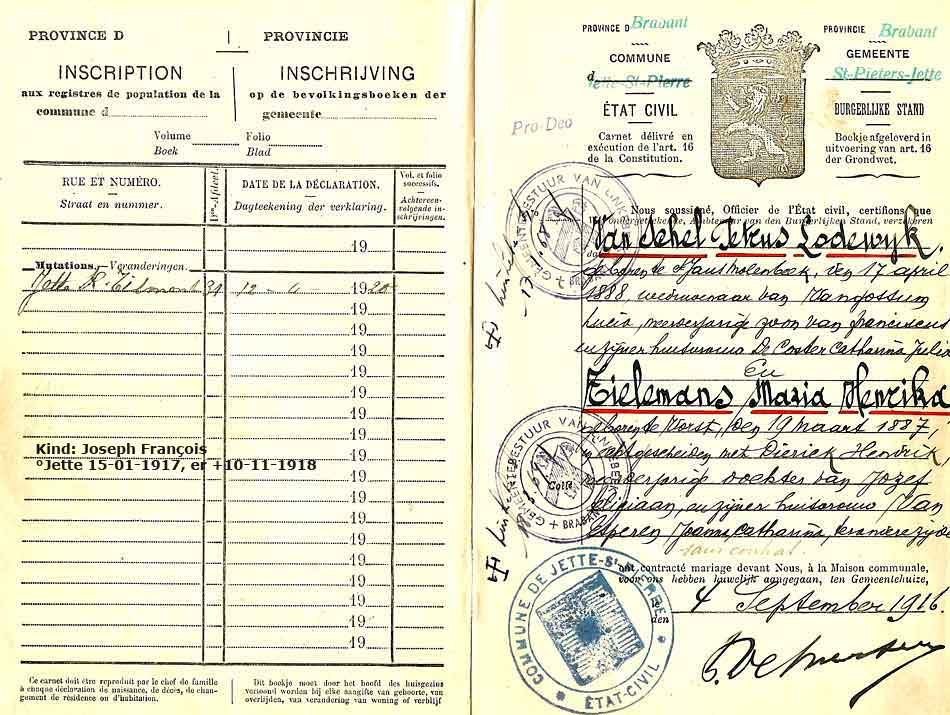 PROVINCE D | PROVINCIE
INSCRIPTION
aux registres de population de la
commune d
INSCHRIJVING
op de bevolkingsboeken der
gemeente
Volume Folio
Boek Blad
RUE ET NUMÉRO.
Straat en nummer.
DATE DE LA DÉCLARATION.
Dagteekening der verklaring.
Vol. et folio
successifs.
Achtereen-
volgende in-
schrijvingen.
19
Mutations. – Veranderingen.
Jette 34 12 1920
19
19
19
19
19
19
19
Kind: Joseph François
°Jette 15-01-1917, er +10-11-1918
19
19
19
19
19
19
19
19
19
19
Ce carnet doit être reproduit par le chef de famille
à chaque déclaration de naissance, de décès, de chan-
gement de résidence ou d'habitation.
Dit boekje moet door het hoofd des huisgezins
vertoond worden bij elke aangifte van geboorte, van
overlijden, van verandering van woning of verblijf
PROVINCE D Brabant
COMMUNE
d Jette-St-Pierre
ÉTAT CIVIL
Carnet délivré en
exécution de l'art. 16
de la Constitution.
Pro-Deo
PROVINCIE Brabant
GEMEENTE
St-Pieters-Jette
BURGERLIJKE STAND
Boekje afgeleverd in
uitvoering van art. 16
der Grondwet.
Nous soussigné, Officier de l'État civil, certifions que
Wij ondergeteekende, Ambtenaar van den Burgerlijken Stand, verzekeren
Petrus Lodewyk,
geboren te St Jans Molenbeek, den 17 april
1888, weduwenaar van Vangossum
Lucia, meerderjarige zoon van franciscus
en zijner huisvrouw De Coster Catharina Julia
En
Tielemans Maria Henrika
geboren te Vorst, den 19 maart 1887,
echtgescheiden met Dierick Hendrik,
meerderjarige dochter van Jozef
en zijner huisvrouw Van
Joanna Catharina, ter andere zijde
sans contrat.
ont contracté mariage devant Nous, à la Maison communale,
voor ons hebben huwelijk aangegaan, ten Gemeentehuize,
den 4 September 1916.
GEMEENTEBESTUUR VAN LINKEBEEK + BRABANT +
GEMEENTEBESTUUR VAN LINKEBEEK + BRABANT +
COMMUNE DE JETTE-ST-PIERRE * ÉTAT-CIVIL *